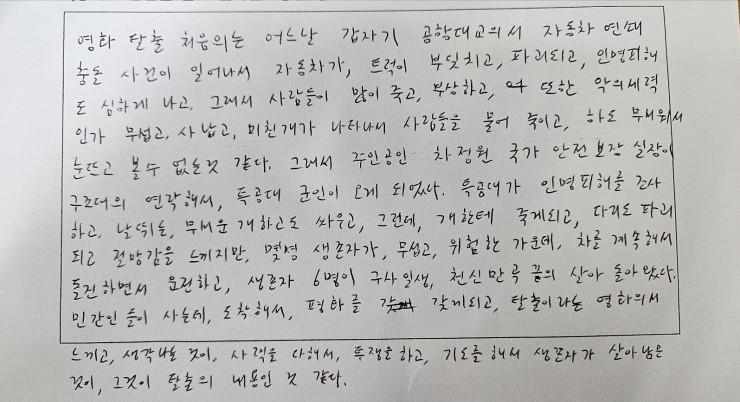 영화 탈출 처음의는 어느날 갑자기 공항대교의서 자동차 연쇄
충돌 사건이 일어나서 자동차가, 트럭이 부딪치고, 파괴되고, 인명피해
도 심하게 나고. 그래서 사람들이 많이 죽고, 부상하고, 또한 악의세력
인가 무섭고, 사납고, 미친개가 나타나서 사람들을 물어 죽이고, 하도 무서워서
눈뜨고 볼수 없는것 같다. 그래서 주인공인 차정원 국가 안전보장 실장이
구조대의 연락해서, 특공대 군인이 오게 되었다. 특공대가 인명피해를 조사
하고, 날뛰는, 무서운 개하고도 싸우고, 그런데, 개한테 죽게되고, 다리도 파괴
되고 절망감을 느끼지만, 몇명 생존자가, 무섭고, 위험한 가운데, 차를 계속해서
돌진하면서 운전하고, 생존자 6명이 구사일생, 천신만곡 끝의 살아 돌아왔다.
민간인들이 사는데, 도착해서, 평화를 갖게되고, 탈출이라는 영화의서
느끼고, 생각나는 것이, 사력을 다해서, 투쟁을하고, 기도를 해서 생존자가 살아남은
것이, 그것이 탈출의 내용인 것 같다.